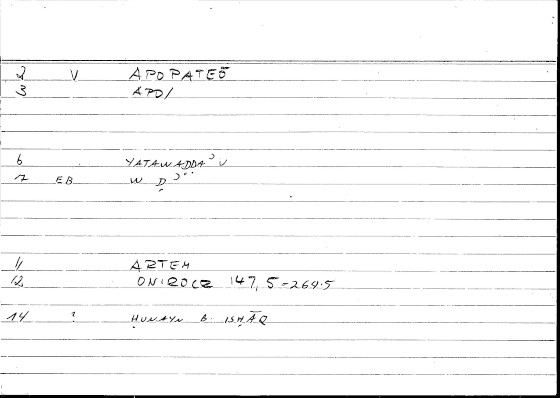 2 V APOPATEŌ
3 APO/
6 YATAWAḌḌAʾU
7 EB W Ḍ ʾ
11 ARTEM
12 ONIROCR 147, 5 = 269.5
14 ? ḤUNAYN B. ISḤĀQ